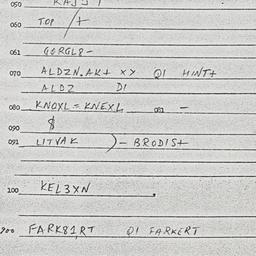 050 KAJJI
060 TOP /t
061 GERGL8-
070 ALDZN.AKt XY QI HINTt
ALDZ DI
080 KNOXL = KNEXL 081 -
090 $
091 LITVAK )- BRODISt
100 KEL3XN .
900 FARK81,RT QI FARKERT